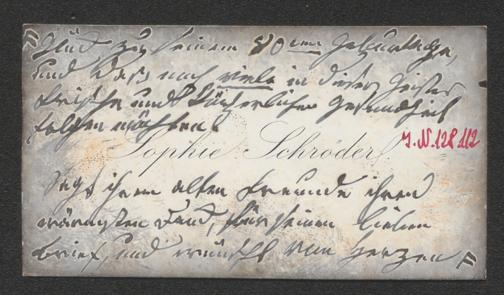 Glück zu seinem 80sten Geburtstage,
und daß noch viele in dieser Geistes
frische und körperlicher Gesundheit
folgen möchten!
Sophie Schröder
J.N. 128112
Sagt ihrem alten Freunde ihren
wärmsten Dank, für seinen lieben
Brief, und wünscht von Herzen